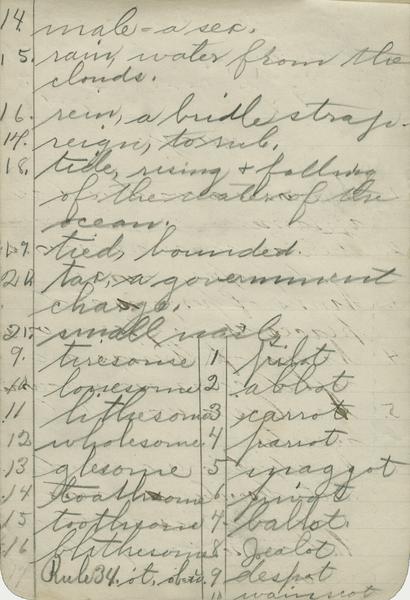 14. male - a sex.
15. rain, water from the
clouds.
16. rein, a bridle strap.
17. reign, to rule.
18. tide, rising + falling
of the water of the
ocean.
19. tied, bounded.
20 tax, a government
charge.
21. small nails
9. tiresome 1 pilot
10. lonesome 2 abbot
11 lithesome 3 carrot
12 wholesome 4 parrot
13 glesome 5 maggot
14 loathsome 6. pivot
15 toothsome 7. ballot.
16 blithesome 8. zealot
Rule 34. ot, 9 despot
wainscot